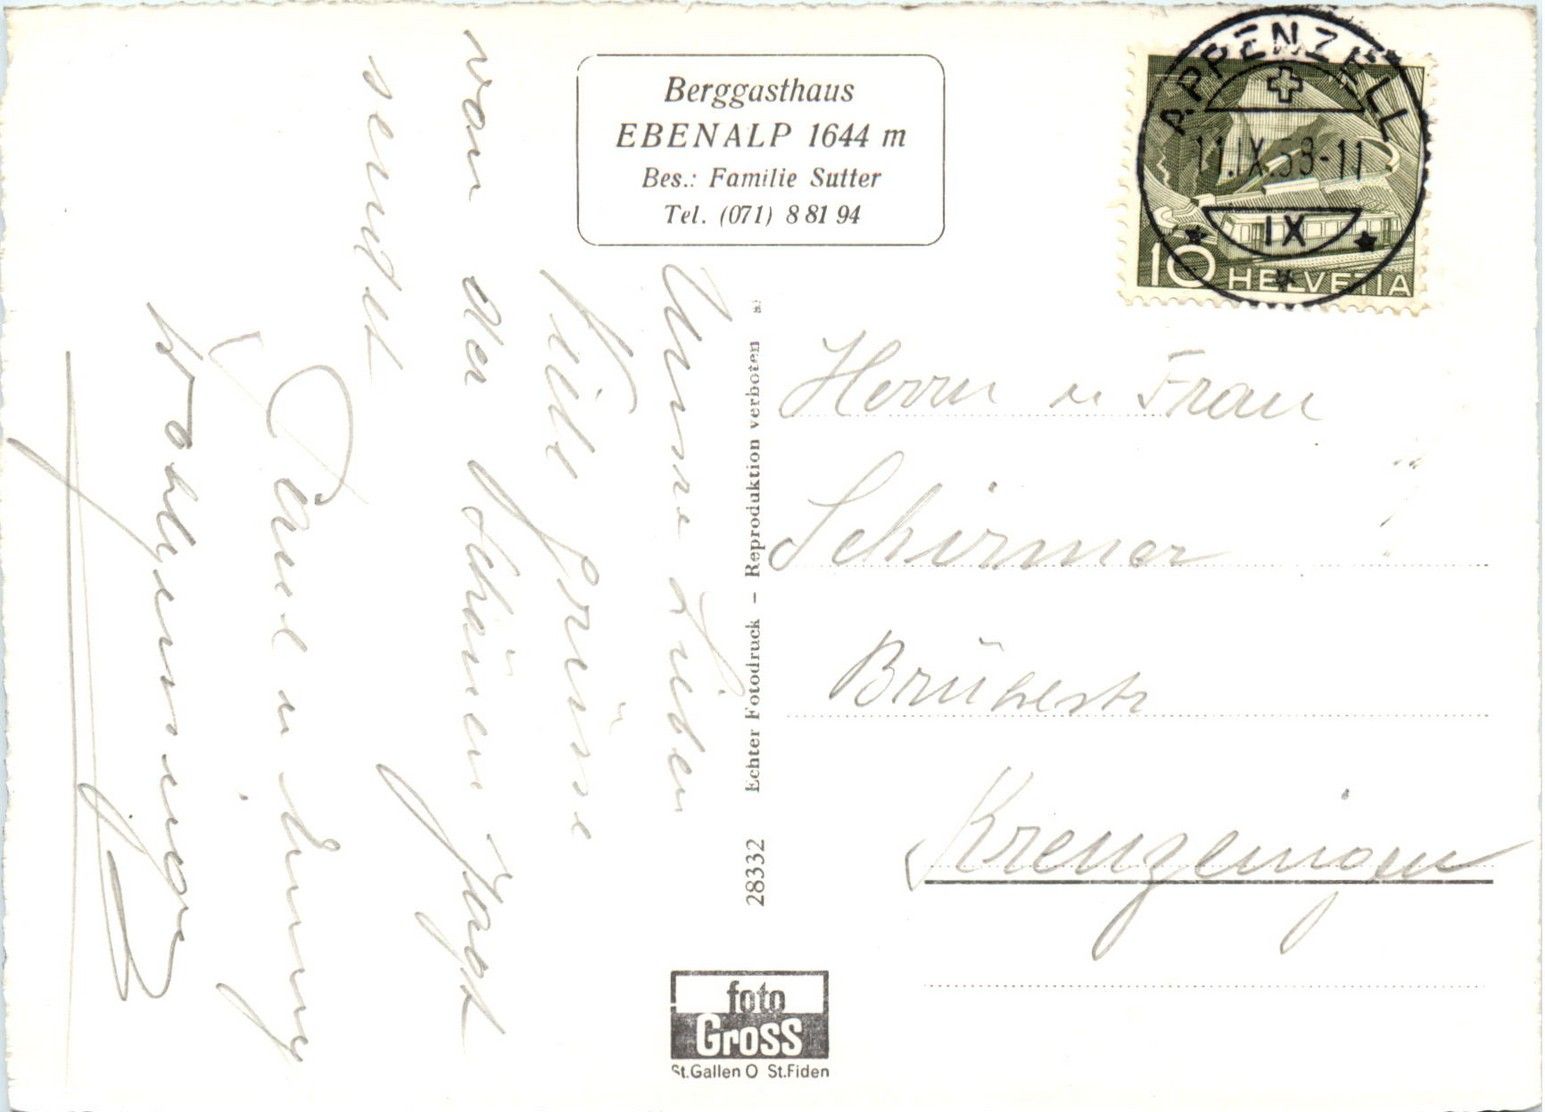 Berggasthaus
EBENALP 1644 m
Bes.: Familie Sutter
Tel. (071) 8 81 94
APPENZELL
11.IX.53-11
IX
10 HELVETIA
Unsre Lieben
Viele Grüsse
von der schönen Jagd
sendet
Paul u Emmy
Herrn u Frau
Schirmer
Brückestr
Kreuzlingen
28332 Echter Fotodruck – Reproduktion verboten
foto
Gross
St.Gallen O St.Fiden